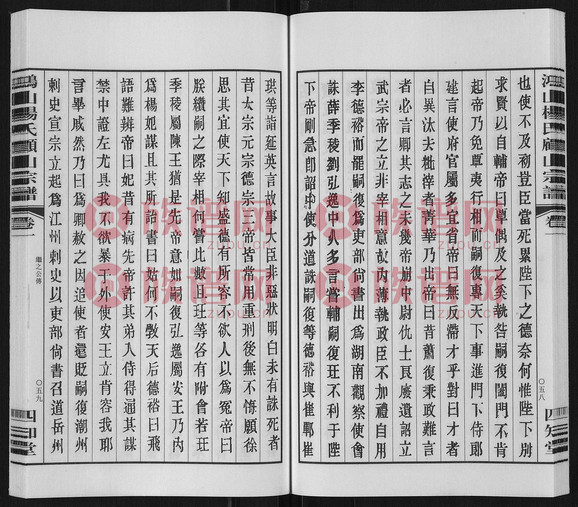 鴻山楊氏顧山宗譜
卷
〇五八
四知堂
也使不及初豈臣當死累陛下之德奈何惟陛下別
求賢以自輔帝曰尊偶及之奚執咎嗣復闔門不肯
起帝乃免尊夷行相而嗣復專天下事進門下侍郎
建言使府官屬多宜省帝曰無反滯才乎對曰才者
自異汰去粃滓者菁華乃出帝曰昔蕭復秉政難言
者必言卿其志之未幾帝崩中尉仇士良廢遺詔立
武宗帝之立非宰相意故內薄執政臣不加禮自用
李德裕而罷嗣復爲吏部尚書出爲湖南觀察使會
誅薛季稜劉弘逸中人多言嘗輔嗣復玨不利于陛
下帝剛急卽詔中使分道誅嗣復等德裕與崔鄲崔
珙等詣延英言故事大臣非惡狀明白未有誅死者
昔太宗玄宗德宗三帝皆常用重刑後無不悔願徐
思其宜使天下知盛德有所容不欲人以爲冤帝曰
朕纘嗣之際宰相何嘗比數且玨等各有附會若玨
季稜屬陳王猶是先帝意如嗣復弘逸屬安王乃內
爲楊妃謀且其所詒書曰姑何不斆天后德裕曰飛
語難辨帝曰妃昔有病先帝許其弟入侍得通其謀
禁中證左尤具我不欲暴于外使安王立肯容我耶
言畢戚然乃曰爲卿赦之因追使者還貶嗣復潮州
刺史宣宗立起爲江州刺史以吏部尚書召道岳州
鴻山楊氏顧山宗譜
卷
繼之公傳
〇五九
四知堂
族谱网
ZPZOO.UC